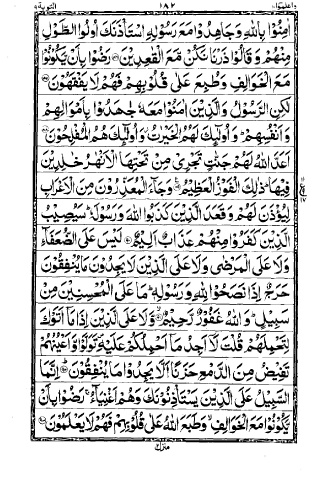 واعلموا ١٠ ١٨٢ التوبة ٩
اٰمِنُوْا بِاللّٰهِ وَجَاهِدُوْا مَعَ رَسُوْلِهِ اسْتَاْذَنَكَ اُولُوا الطَّوْلِ
مِنْهُمْ وَقَالُوْا ذَرْنَا نَكُنْ مَّعَ الْقٰعِدِيْنَ رَضُوْا بِاَنْ يَّكُوْنُوْا
مَعَ الْخَوَالِفِ وَطُبِعَ عَلٰى قُلُوْبِهِمْ فَهُمْ لَا يَفْقَهُوْنَ
لٰكِنِ الرَّسُوْلُ وَالَّذِيْنَ اٰمَنُوْا مَعَهٗ جٰهَدُوْا بِاَمْوَالِهِمْ
وَاَنْفُسِهِمْ وَاُولٰٓئِكَ لَهُمُ الْخَيْرٰتُ وَاُولٰٓئِكَ هُمُ الْمُفْلِحُوْنَ
اَعَدَّ اللّٰهُ لَهُمْ جَنّٰتٍ تَجْرِيْ مِنْ تَحْتِهَا الْاَنْهٰرُ خٰلِدِيْنَ
فِيْهَا ذٰلِكَ الْفَوْزُ الْعَظِيْمُ وَجَآءَ الْمُعَذِّرُوْنَ مِنَ الْاَعْرَابِ
لِيُؤْذَنَ لَهُمْ وَقَعَدَ الَّذِيْنَ كَذَبُوا اللّٰهَ وَرَسُوْلَهٗ سَيُصِيْبُ
الَّذِيْنَ كَفَرُوْا مِنْهُمْ عَذَابٌ اَلِيْمٌ لَيْسَ عَلَى الضُّعَفَآءِ
وَلَا عَلَى الْمَرْضٰى وَلَا عَلَى الَّذِيْنَ لَا يَجِدُوْنَ مَا يُنْفِقُوْنَ
حَرَجٌ اِذَا نَصَحُوْا لِلّٰهِ وَرَسُوْلِهٖ مَا عَلَى الْمُحْسِنِيْنَ مِنْ
سَبِيْلٍ وَاللّٰهُ غَفُوْرٌ رَّحِيْمٌ وَّلَا عَلَى الَّذِيْنَ اِذَا مَآ اَتَوْكَ
لِتَحْمِلَهُمْ قُلْتَ لَآ اَجِدُ مَآ اَحْمِلُكُمْ عَلَيْهِ تَوَلَّوْا وَّاَعْيُنُهُمْ
تَفِيْضُ مِنَ الدَّمْعِ حَزَنًا اَلَّا يَجِدُوْا مَا يُنْفِقُوْنَ اِنَّمَا
السَّبِيْلُ عَلَى الَّذِيْنَ يَسْتَاْذِنُوْنَكَ وَهُمْ اَغْنِيَآءُ رَضُوْا بِاَنْ
يَّكُوْنُوْا مَعَ الْخَوَالِفِ وَطَبَعَ اللّٰهُ عَلٰى قُلُوْبِهِمْ فَهُمْ لَا يَعْلَمُوْنَ